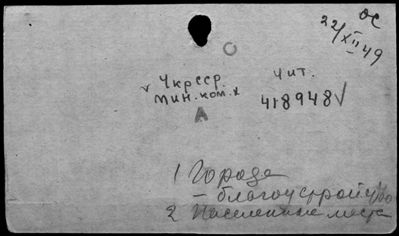 ос
22/XII 49
О
v Укрсср. Чит.
Мин. ком. х 418948 √
А
1 Города
– благоустройство
2 Населенные места